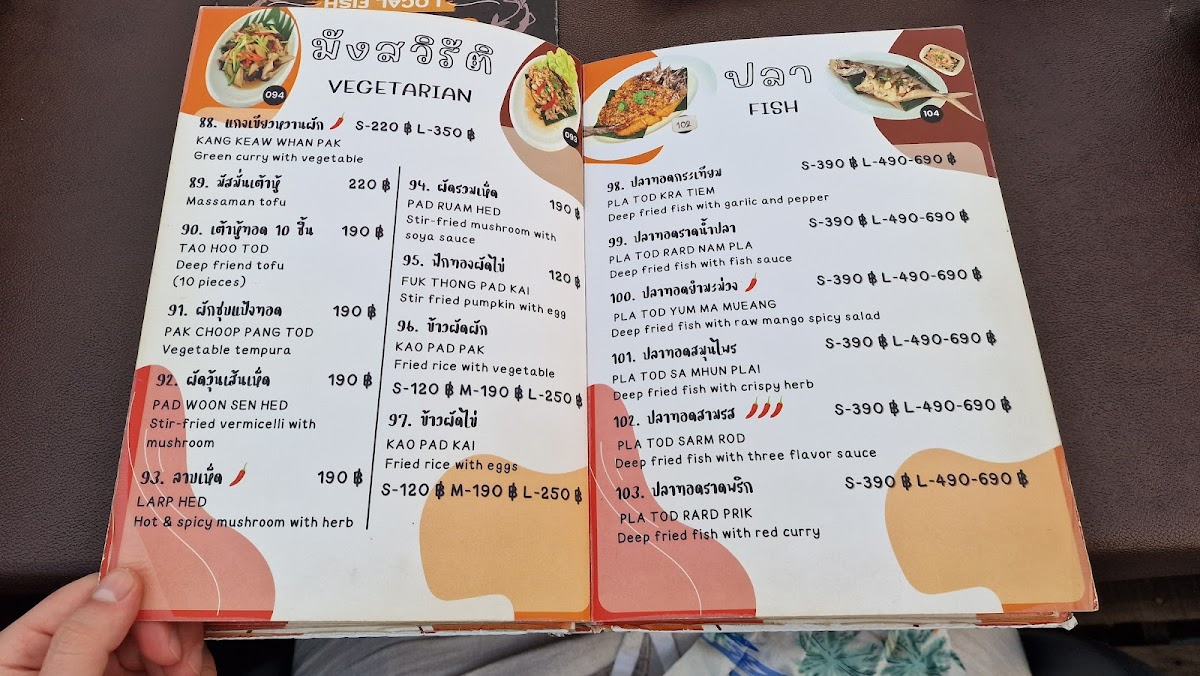 LOCAL FISH
094
มังสวิรัติ
VEGETARIAN
093
88. แกงเขียวหวานผัก S-220 ฿ L-350 ฿
KANG KEAW WHAN PAK
Green curry with vegetable
89. มัสมั่นเต้าหู้ 220 ฿
Massaman tofu
90. เต้าหู้ทอด 10 ชิ้น 190 ฿
TAO HOO TOD
Deep friend tofu
(10 pieces)
91. ผักชุบแป้งทอด 190 ฿
PAK CHOOP PANG TOD
Vegetable tempura
92. ผัดวุ้นเส้นเห็ด 190 ฿
PAD WOON SEN HED
Stir-fried vermicelli with
mushroom
93. ลาบเห็ด 190 ฿
LARP HED
Hot & spicy mushroom with herb
94. ผัดรวมเห็ด 190 ฿
PAD RUAM HED
Stir-fried mushroom with
soya sauce
95. ฟักทองผัดไข่ 120 ฿
FUK THONG PAD KAI
Stir fried pumpkin with egg
96. ข้าวผัดผัก
KAO PAD PAK
Fried rice with vegetable
S-120 ฿ M-190 ฿ L-250 ฿
97. ข้าวผัดไข่
KAO PAD KAI
Fried rice with eggs
S-120 ฿ M-190 ฿ L-250 ฿
102
ปลา
FISH
104
98. ปลาทอดกระเทียม S-390 ฿ L-490-690 ฿
PLA TOD KRA TIEM
Deep fried fish with garlic and pepper
99. ปลาทอดราดน้ำปลา S-390 ฿ L-490-690 ฿
PLA TOD RARD NAM PLA
Deep fried fish with fish sauce
100. ปลาทอดยำมะม่วง S-390 ฿ L-490-690 ฿
PLA TOD YUM MA MUEANG
Deep fried fish with raw mango spicy salad
101. ปลาทอดสมุนไพร S-390 ฿ L-490-690 ฿
PLA TOD SA MHUN PLAI
Deep fried fish with crispy herb
102. ปลาทอดสามรส S-390 ฿ L-490-690 ฿
PLA TOD SARM ROD
Deep fried fish with three flavor sauce
103. ปลาทอดราดพริก S-390 ฿ L-490-690 ฿
PLA TOD RARD PRIK
Deep fried fish with red curry